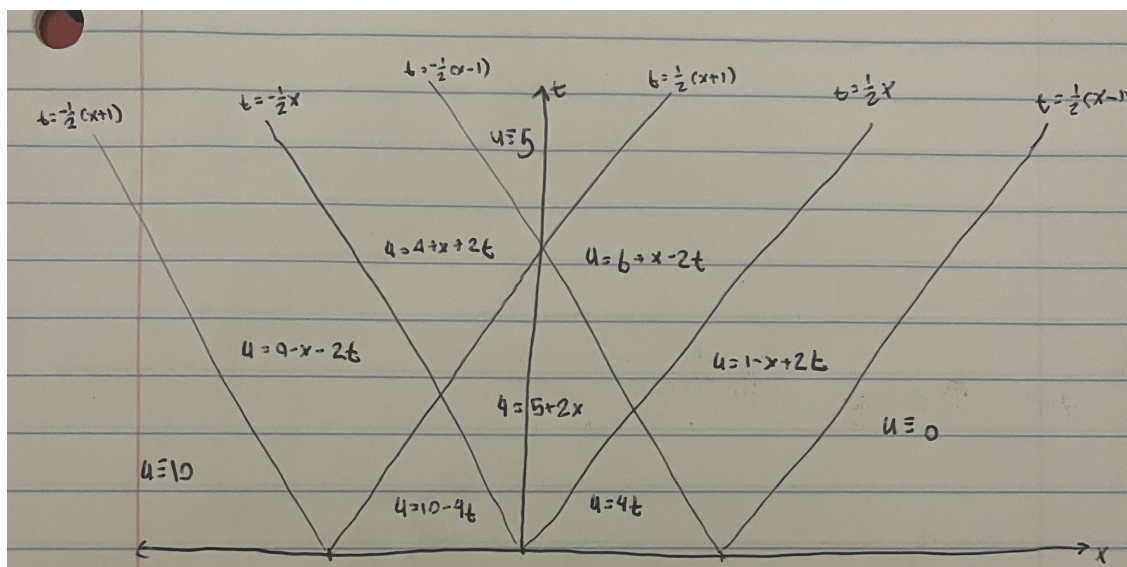 t=-½(x-1)
t=½(x+1)
t=-½(x+1)
t=-½x
t
t=½x
t=½(x-1)
u≡5
u=4+x+2t
u=6+x-2t
u=9-x-2t
u=1-x+2t
u=5+2x
u≡0
u≡10
u=10-4t
u=4t
x